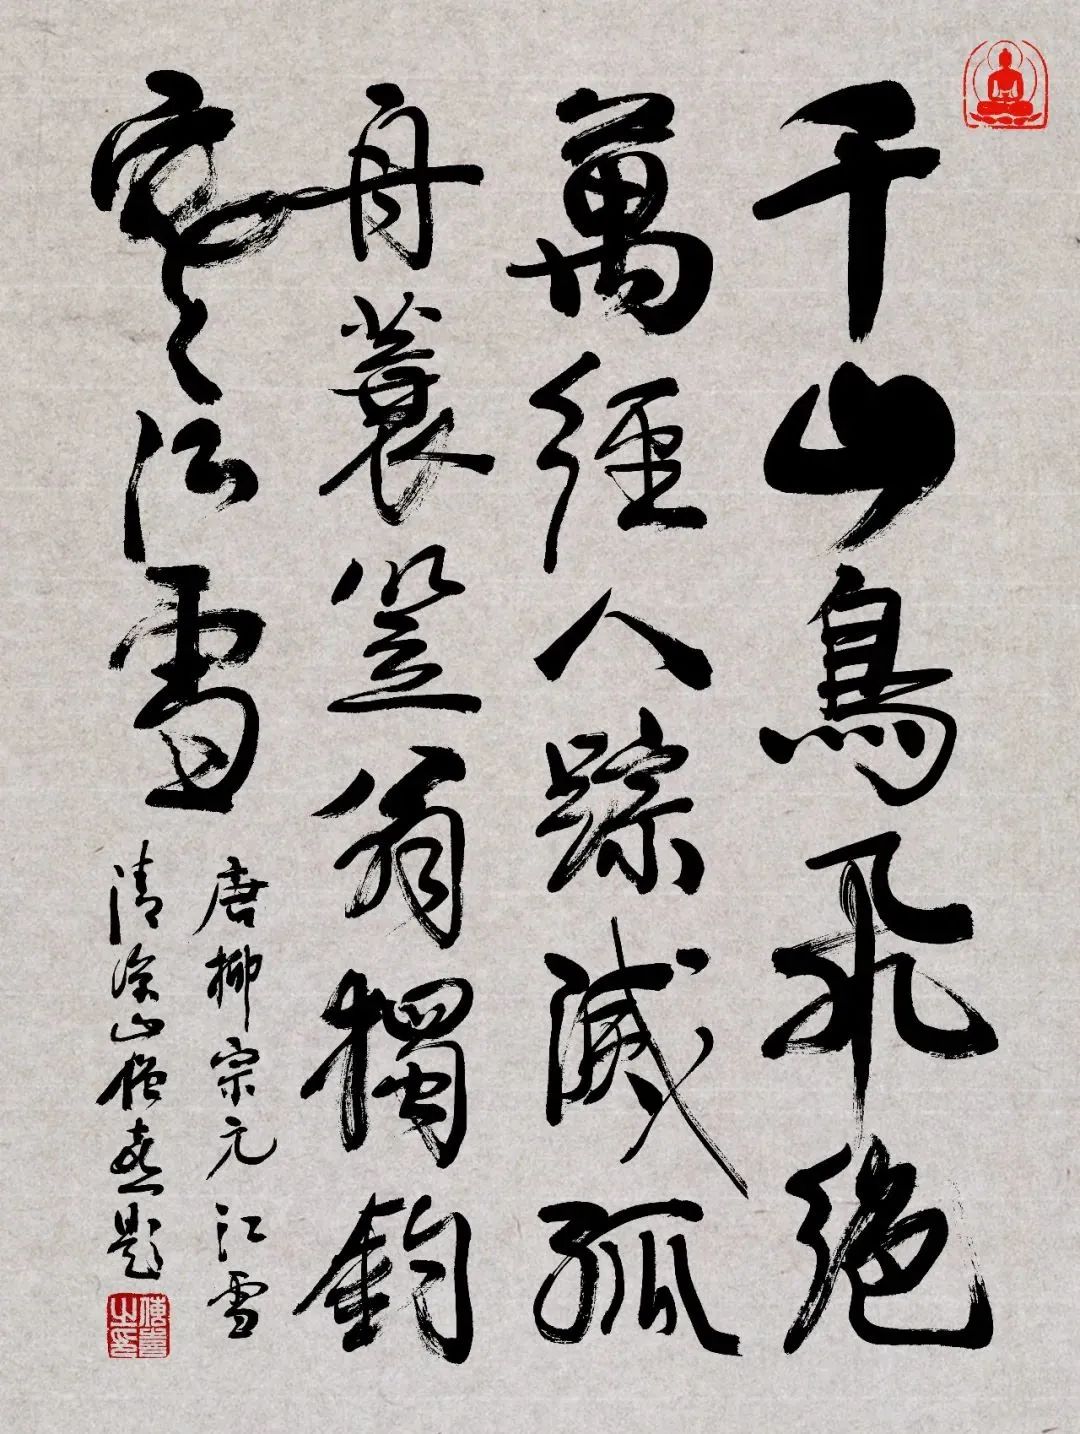 千山鳥飛絕
萬徑人踪滅孤
舟蓑笠翁獨釣
寒江雪
唐柳宗元江雪
清凉山僧喜題